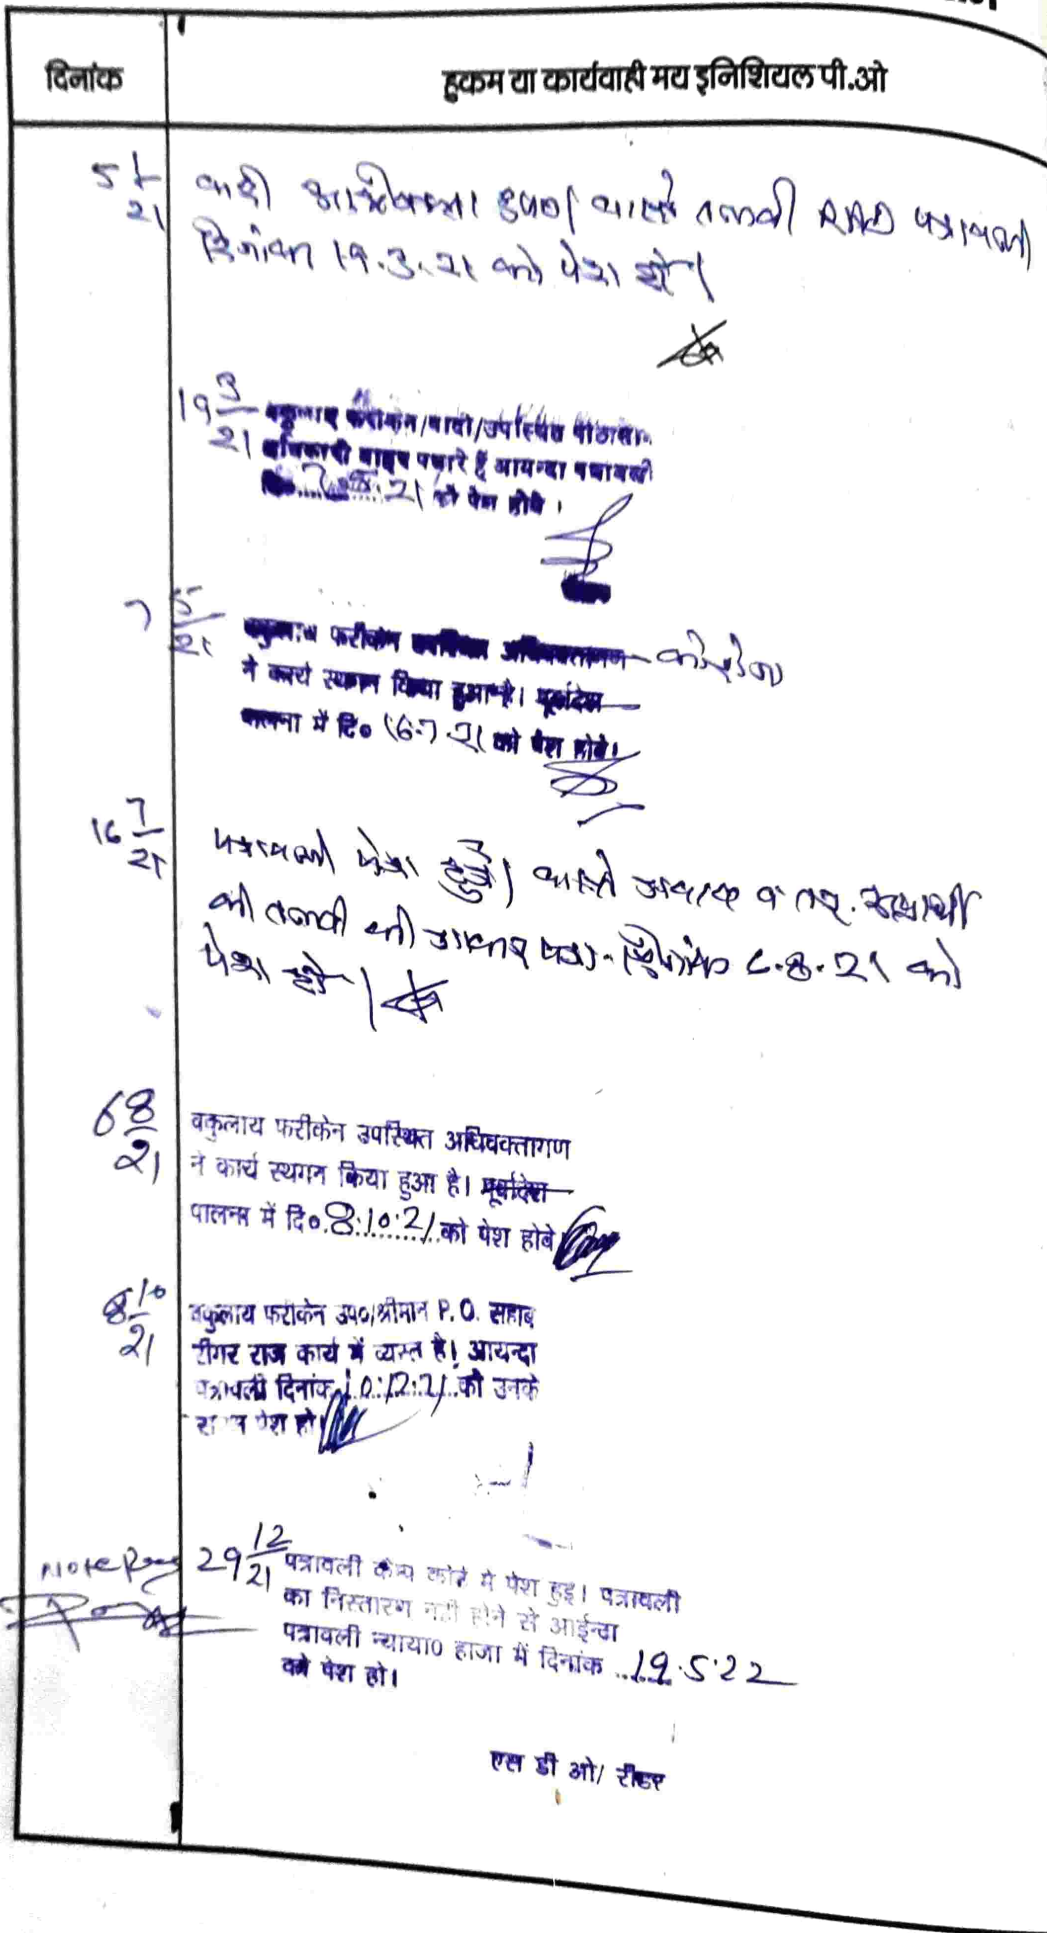 दिनांक
हुकम या कार्यवाही मय इनिशियल पी.ओ
5 1/21 वादी उप0/ वास्ते तलबी RAD पत्रावली
दिनांक 19.3.21 को पेश हो।
19 3/21 वकुलाए फरीकेन/वादी/उपस्थित पीठासीन
अधिकारी बाहर पधारे हैं आयन्दा पत्रावली
21 को पेश होवे।
7 5/21 वकुलाय फरीकेन उपस्थित अधिवक्तागण कोरोना
ने कार्य स्थगन किया हुआ है। पूर्वादेश
पालना में दि० 16.7.21 को पेश होवे।
16 7/21 पत्रावली पेश हुई। वास्ते जवाब व
की तलबी की जाकर दिनांक 6.8.21 को
पेश हो।
6 8/21 वकुलाय फरीकेन उपस्थित अधिवक्तागण
ने कार्य स्थगन किया हुआ है। पूर्वादेश
पालना में दि० 8.10.21 को पेश होवे
8 10/21 वकुलाय फरीकेन उप0/श्रीमान P.O. सहाब
दीगर राज कार्य में व्यस्त है। आयन्दा
पत्रावली दिनांक 10.12.21 को उनके
पेश हो।
Note 29 12/21 पत्रावली केम्प कोर्ट में पेश हुई। पत्रावली
का निस्तारण नही होने से आईन्दा
पत्रावली न्याया0 हाजा में दिनांक 19.5.22
को पेश हो।
एस डी ओ/ रीडर